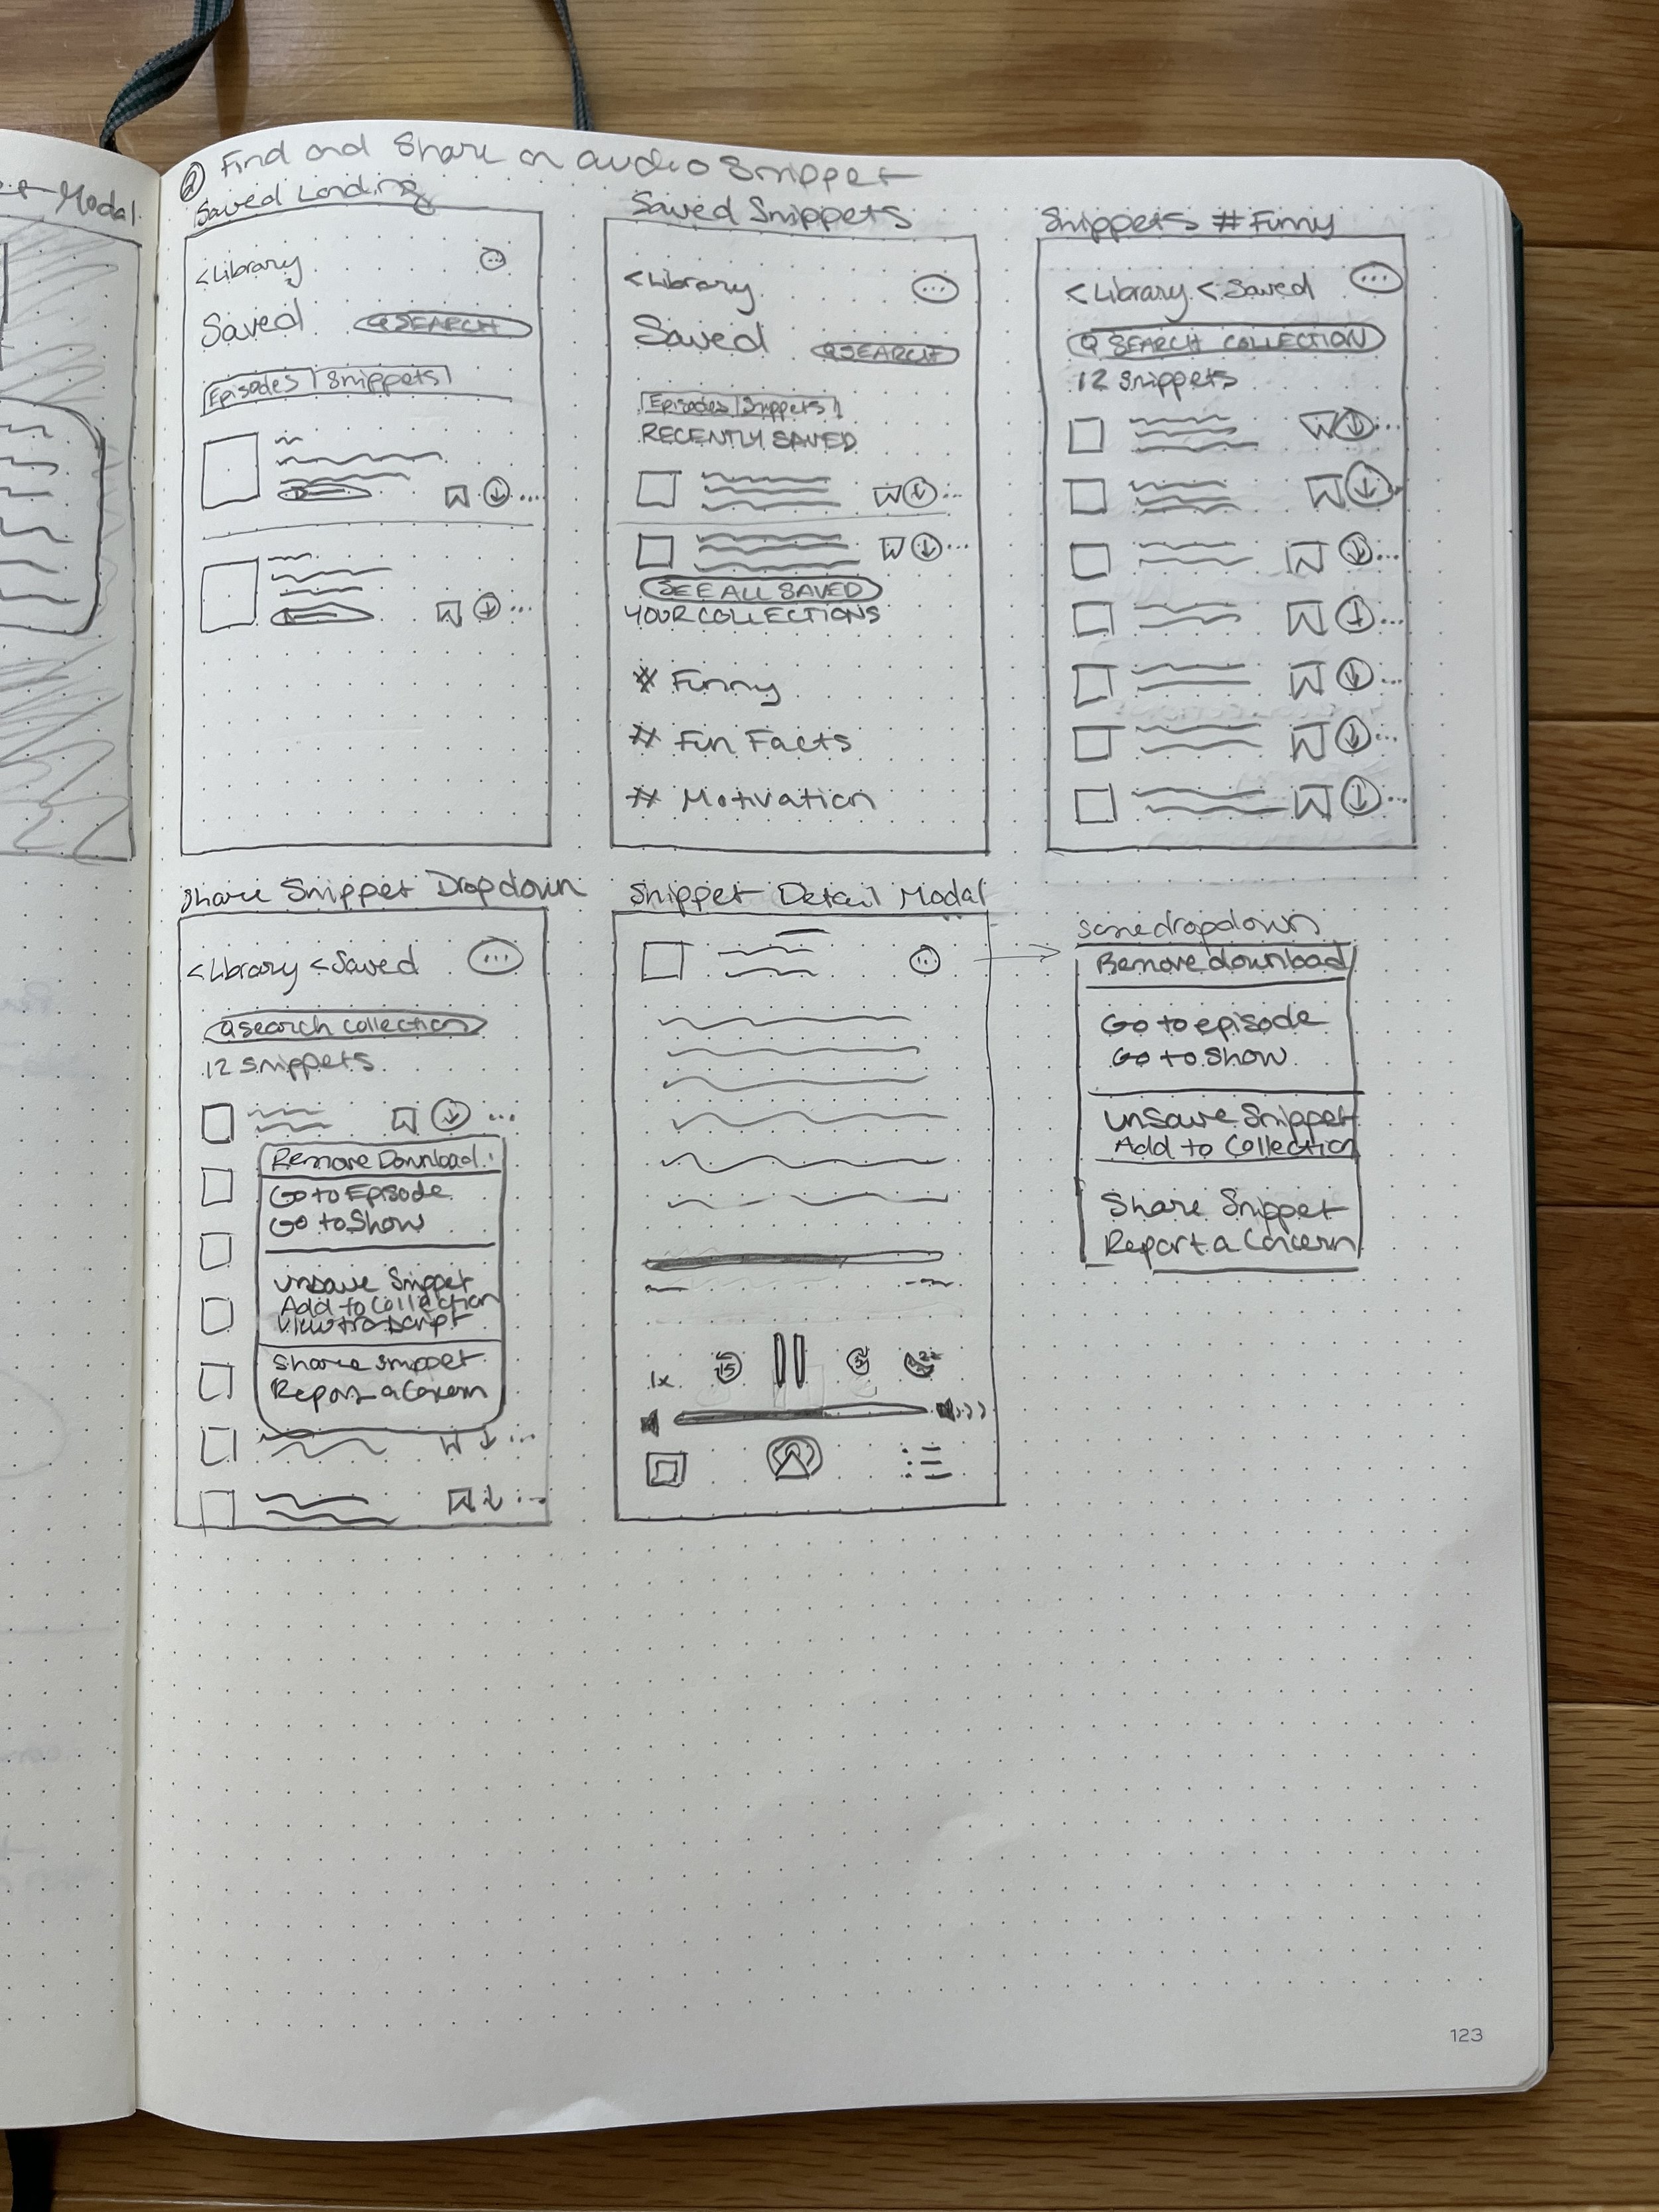 Modal
② Find and Share an audio Snippet
Saved Landing
<Library
Saved
SEARCH
Episodes | Snippets
Saved Snippets
<Library
Saved
SEARCH
Episodes | Snippets
RECENTLY SAVED
SEE ALL SAVED
YOUR COLLECTIONS
# Funny
# Fun Facts
# Motivation
Snippets #Funny
<Library <Saved
SEARCH COLLECTION
12 snippets
Share Snippet Dropdown
<Library <Saved
search collection
12 snippets
Remove Download
Go to Episode
Go to Show
unsave Snippet
Add to Collection
View transcript
Share snippet
Report a Concern
Snippet Detail Modal
1x
15
same dropdown
Remove download
Go to episode
Go to Show
Unsave Snippet
Add to Collection
Share Snippet
Report a Concern
123